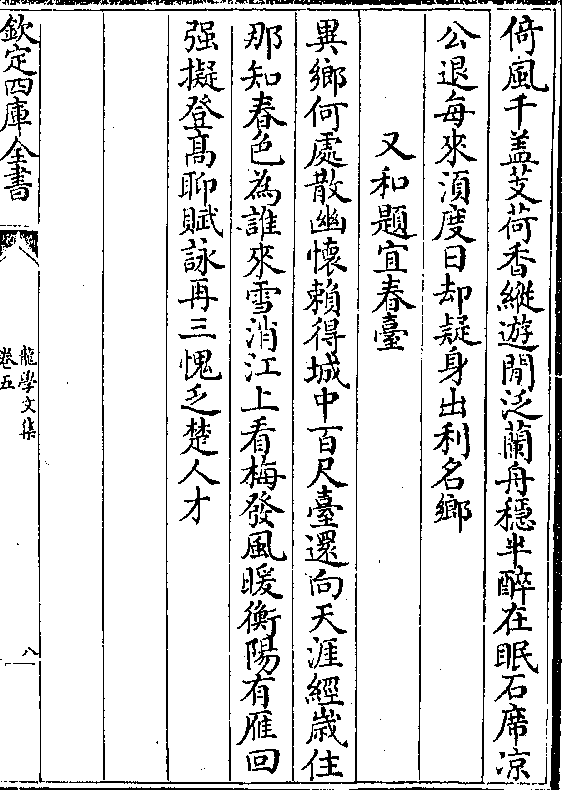 倚風千盖芰荷香縱遊閒泛蘭舟穩半醉在眠石席凉
公退每來湏度日却疑身出利名鄉
又和題宜春臺
異鄉何處散幽懷賴得城中百尺臺還向天涯經歲住
那知春色為誰來雪消江上看梅發風暖衡陽有雁回
强擬登髙聊賦詠再三愧乏楚人才
欽定四庫全書
龍學文集
卷五
八